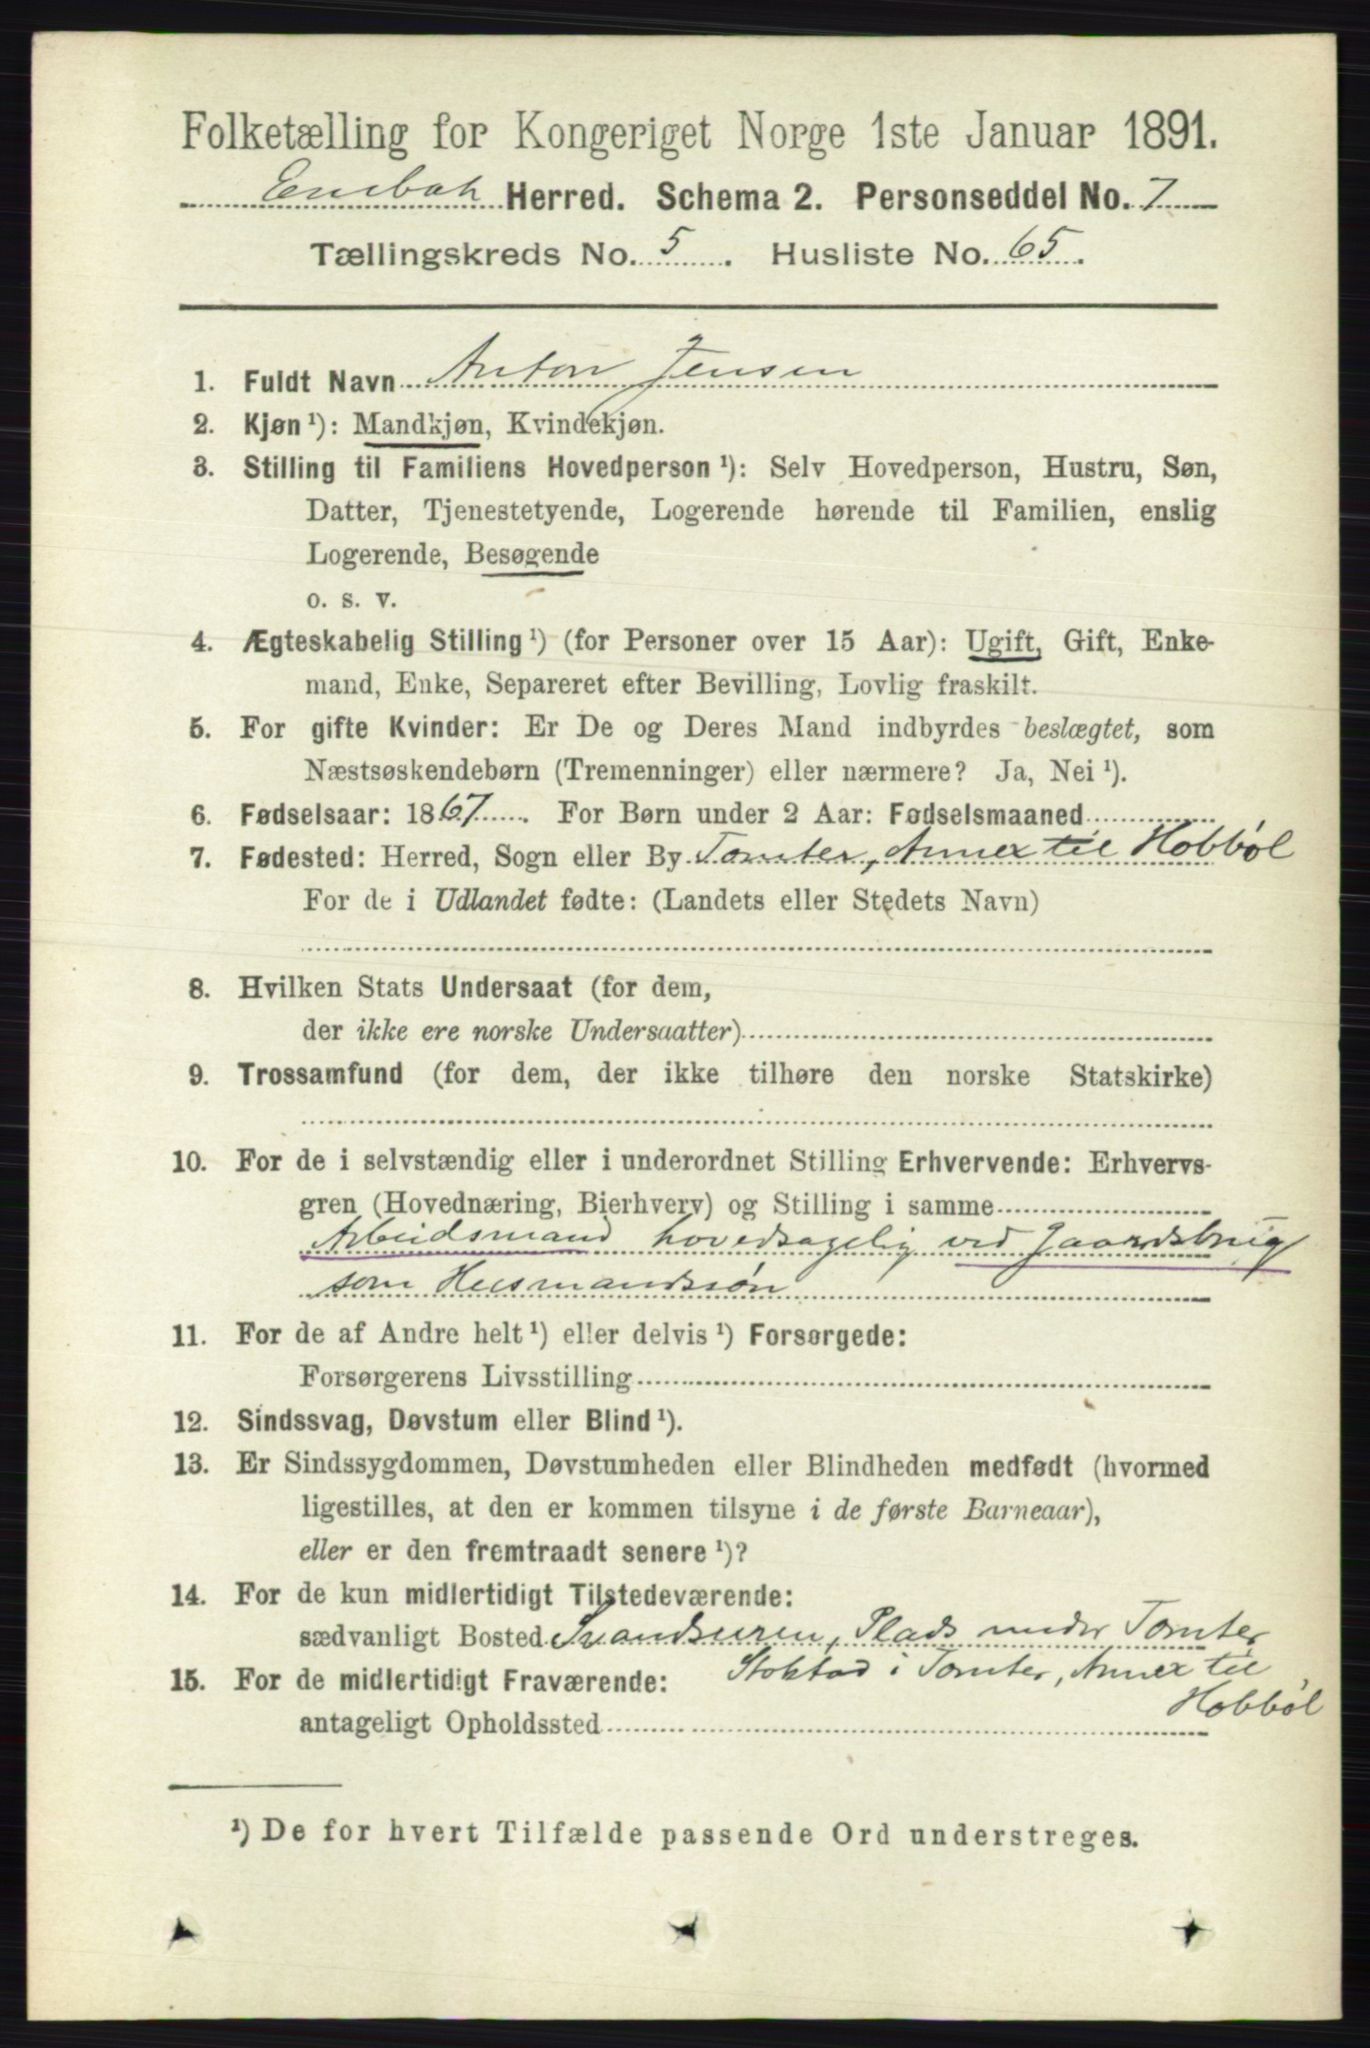 Folketælling for Kongeriget Norge 1ste Januar 1891.
Enebak Herred. Schema 2. Personseddel No. 7
Tællingskreds No. 5. Husliste No. 65.
1. Fuldt Navn Anton Jensen
2. Kjøn ¹): Mandkjøn, Kvindekjøn.
3. Stilling til Familiens Hovedperson ¹): Selv Hovedperson, Hustru, Søn,
Datter, Tjenestetyende, Logerende hørende til Familien, enslig
Logerende, Besøgende
o. s. v.
4. Ægteskabelig Stilling ¹) (for Personer over 15 Aar): Ugift, Gift, Enke-
mand, Enke, Separeret efter Bevilling, Lovlig fraskilt.
5. For gifte Kvinder: Er De og Deres Mand indbyrdes beslægtet, som
Næstsøskendebørn (Tremenninger) eller nærmere? Ja, Nei ¹).
6. Fødselsaar: 1867. For Børn under 2 Aar: Fødselsmaaned
7. Fødested: Herred, Sogn eller By Tomter, Annex til Hobbøl
For de i Udlandet fødte: (Landets eller Stedets Navn)
8. Hvilken Stats Undersaat (for dem,
der ikke ere norske Undersaatter)
9. Trossamfund (for dem, der ikke tilhøre den norske Statskirke)
10. For de i selvstændig eller i underordnet Stilling Erhvervende: Erhvervs-
gren (Hovednæring, Bierhverv) og Stilling i samme
Arbeidsmand hovedsagelig ved Gaardsbrug
som Husmandssøn
11. For de af Andre helt ¹) eller delvis ¹) Forsørgede:
Forsørgerens Livsstilling
12. Sindssvag, Døvstum eller Blind ¹).
13. Er Sindssygdommen, Døvstumheden eller Blindheden medfødt (hvormed
ligestilles, at den er kommen tilsyne i de første Barneaar),
eller er den fremtraadt senere ¹)?
14. For de kun midlertidigt Tilstedeværende:
sædvanligt Bosted Plads under Tomter
Stoktad i Tomter, Annex til
Hobbøl
15. For de midlertidigt Fraværende:
antageligt Opholdssted
¹) De for hvert Tilfælde passende Ord understreges.